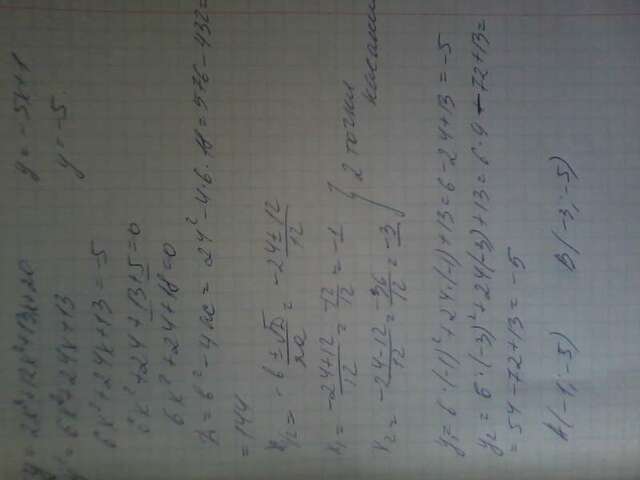 y = 2x³+12x²+13x+20 y = -5x+1
y' = 6x²+24x+13 y' = -5
6x²+24x+13 = -5
6x²+24+13+5=0
6x²+24+18=0
D = b²-4ac = 24²-4·6·18=576-432=
=144
x½ = -b±√D/2a = -24±12/12
x₁ = -24+12/12 = -12/12 = -1
x₂ = -24-12/12 = -36/12 = -3 } 2 точки касания
y₁ = 6·(-1)²+24·(-1)+13=6-24+13=-5
y₂ = 6·(-3)²+24(-3)+13=6·9-72+13=
= 54-72+13 = -5
A(-1; -5) B(-3; -5)